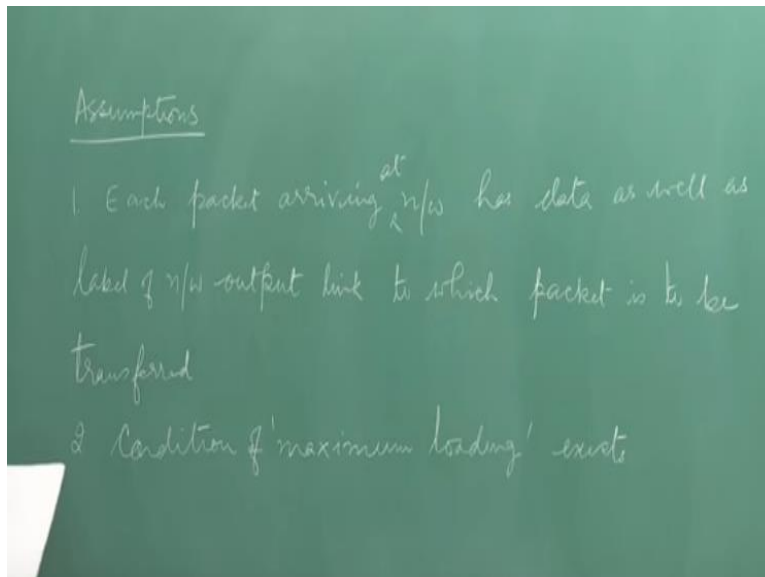 Assumptions
at
1. Each packet arriving n/w has data as well as
label of n/w output link to which packet is to be
transferred
2 Condition of 'maximum loading' exists